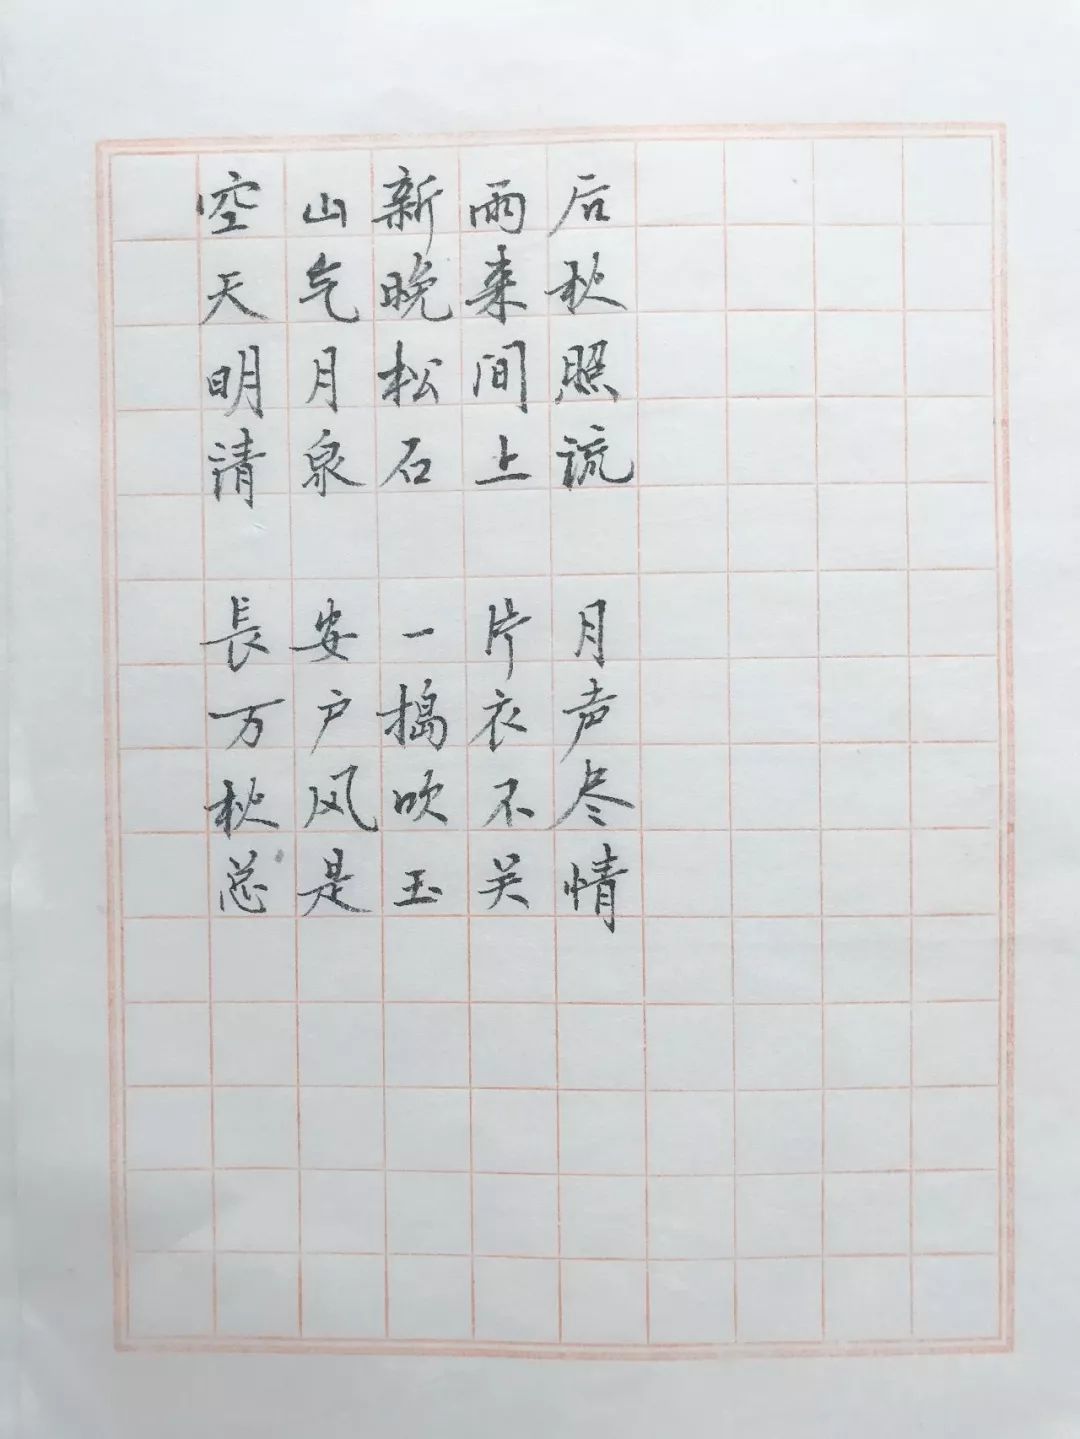 空山新雨后
天气晚来秋
明月松间照
清泉石上流
長安一片月
万户捣衣声
秋风吹不尽
总是玉关情